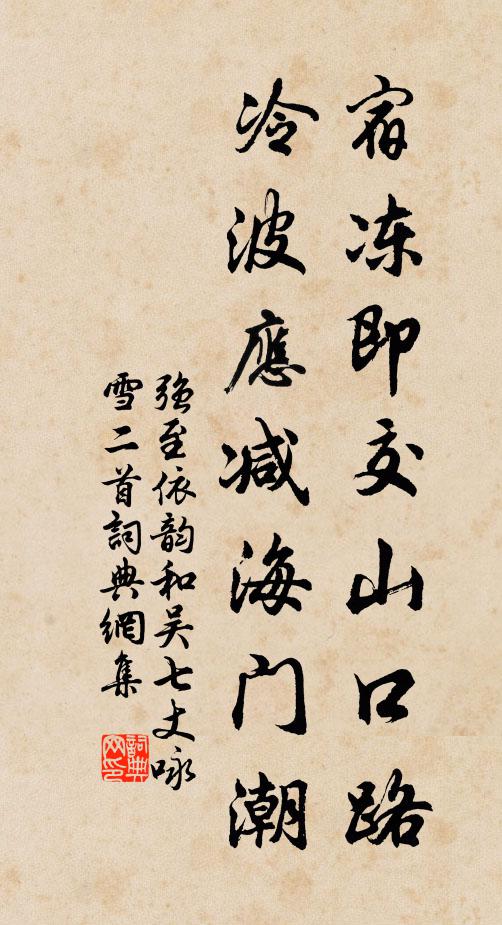 宿冻即交山口路
冷波應减海门潮
强至依韵和吴七丈咏
雪二首詞典網集
詞典
网印